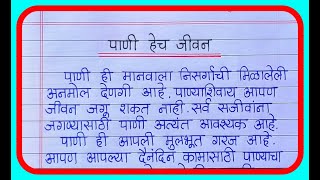 पाणी हेच जीवन
पाणी ही मानवाला निसर्गाची मिळालेली
अनमोल देणगी आहे. पाण्याशिवाय आपण
जीवन जगू शकत नाही. सर्व सजीवांना
जगण्यासाठी पाणी अत्यंत आवश्यक आहे.
पाणी ही आपली मुलभूत गरज आहे.
आपण आपल्या दैनंदिन कामासाठी पाण्याचा